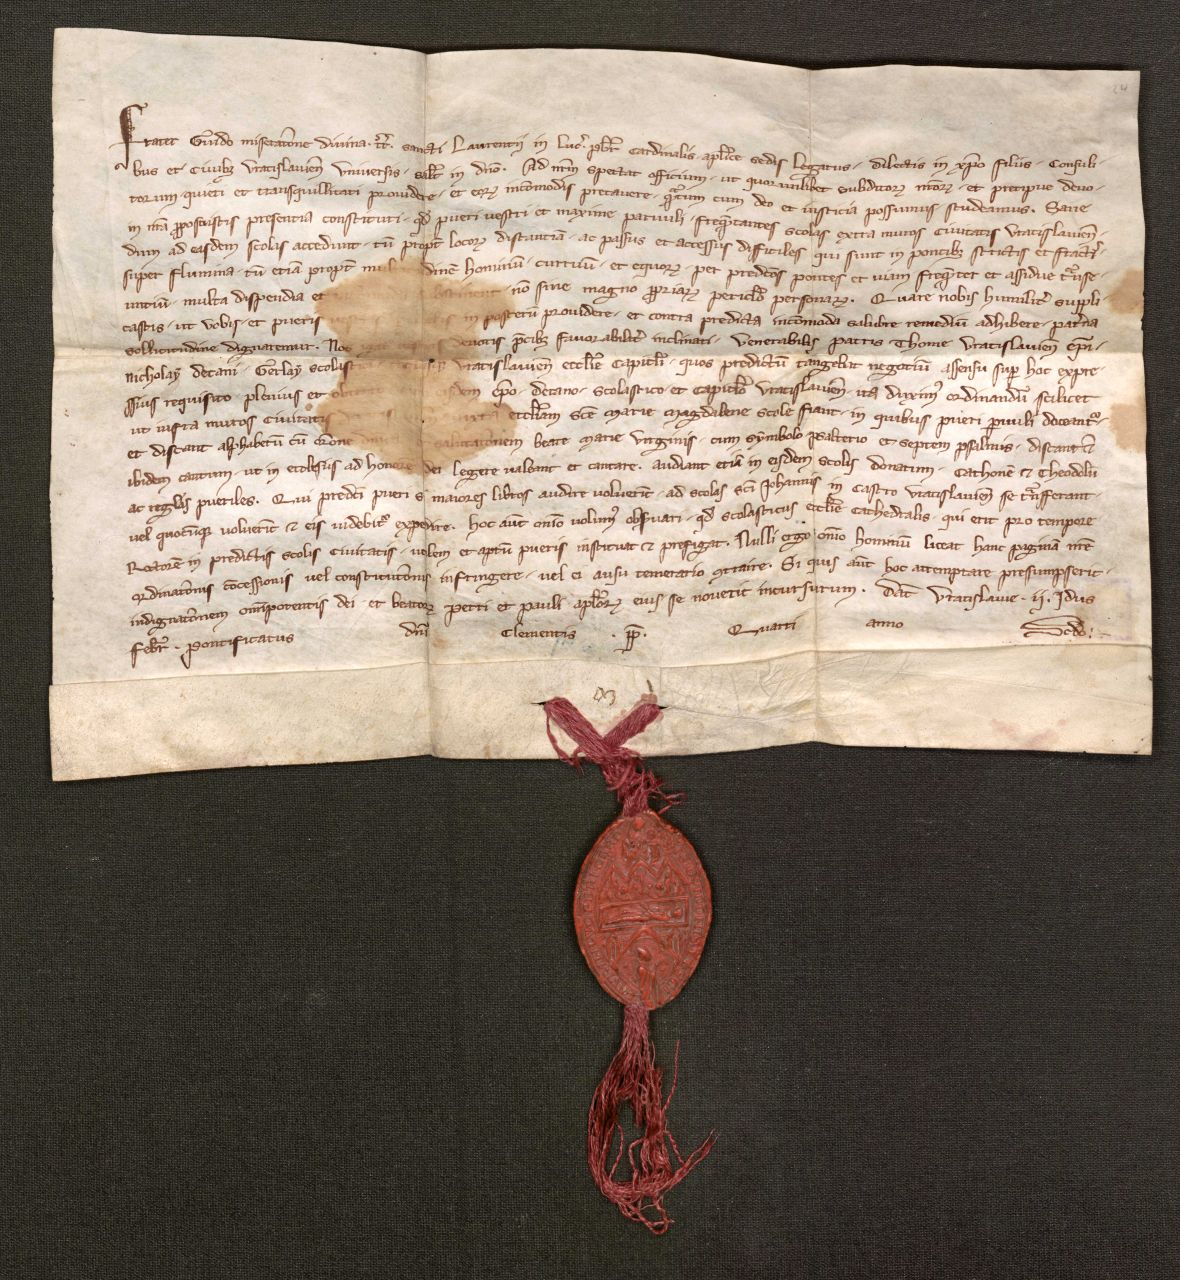 Frater Guido miseratōne divina · tt̄. sancti Laurentii in Luc̄. p̄br̄ Cardinalis · aplīce sedis Legatus · dilectis in xp̄o filiis · Consuli
bus et · Civib; Vratislavien̄ universis · salt̄ in dn̄o. Ad nr̄m spectat officium · ut quorumlibet subditor; nr̄or; · et precipue devo
torum · quieti et tranquillitati providere · et eor; incōmodis precavere · q̄ntum cum deo et iusticia possumus · studeamus. Sane
in nr̄a p̄posuistis presentia constituti · qd̄ pueri vestri et maxime parvuli · freq̄ntantes scolas extra muros Civitatis Vratislavien̄ ·
dum ad easdem scolas accedunt · tū propt̄ locor; distantiā · ac passus et accessus difficiles qui sunt in pontib; strictis et fractis
super flumina · tū etiā propt̄ dinē hominū · curruū · et equor; · per predc̄os pontes et viam freq̄nter et assidue t̄nse
untiū · multa dispendia et · nō sine magno p̄priar; periclō personar;. Quare nobis humilit̄ suppli
castis · ut vobis · et pueris in posterū providere · et contra predicta incōmoda salubre remediū adhibere · pat̄na
sollicitudine dignaremur. Nos devotis p̄cib; favorabilit̄ inclinati · Venerabilis patris Thome Vratislavien̄ ep̄i ·
Nicholay decani · Gerlay scolastici Vratislavien̄ ecclīe Capitli · quos predictū tangebat negotiū assensu sup hoc expre
ssius requisito plenius et eisdem ep̄o · decano · scolastico et capitlō Vratislavien̄ · ita duxim9 ordinandū scilicet
ut infra muros civitatis iuxta eccliam Scē Marie Magdalene scole fiant · in quibus pueri p̄vuli doceant̄ ·
et discant alphabetū cū or̄one dnīca et salutatōnem beate Marie Virginis · cum symbolo psalterio et septem psalmis · discant et
ibidem cantum · ut in ecclesiis ad honorē dei legere valeant et cantare. Audiant etiā in eisdem scolis donatum · Cathonē et Theodolū
ac reglas pueriles. Qui predc̄i pueri si maiores libros audire voluerit̄ · ad scolas scī Johannis in Castro Vratislavien̄ se t̄nsferant ·
vel quocūq; voluerit̄ et eis videbit̄ expedire. Hoc aut̄ om̄io volum9 obs̄vari · qd̄ scolasticus ecclīe cathedralis · qui erit pro tempore
Rectorē in predictis scolis Civitatis · ydoneū et aptū pueris instituat et prefigat. Nulli ergo om̄io hominū liceat hanc paginā nr̄e
ordinatōnis cōcessionis vel constitutōnis infringere · vel ei ausu temerario 9traire. Si quis aut̄ hoc attemptare presumpserit ·
indignatōnem omīpotentis dei · et beator; petri et pauli aplōr; eius se noverit incursurum. Dat̄ Vratislavie · ii. Idus
Febr̄ · Pontificatus dn̄i Clementis · pp̄. Quarti anno Scdo.